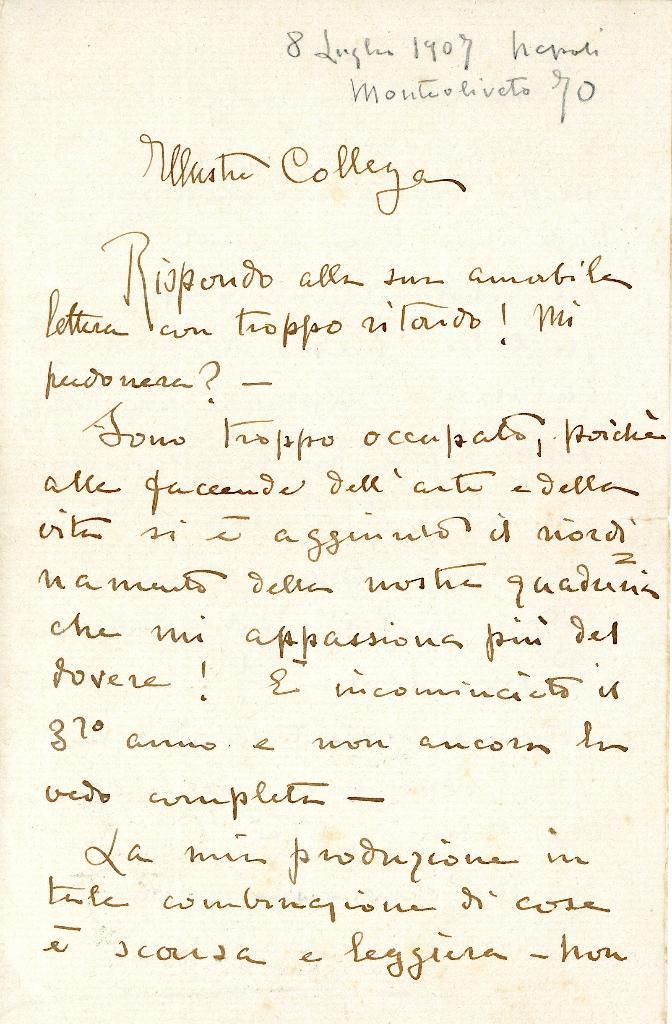 8 Luglio 1907 Napoli
Monteoliveto 70
Illustre Collega
Rispondo alla sua amabile
lettera con troppo ritardo! Mi
perdonerà? —
Sono troppo occupato, poichè
alle faccende dell'arte e della
vita si è aggiunto il riordi
namento della nostra quadreria
che mi appassiona più del
dovere! È incominciato il
3º anno e non ancora la
vedo completa —
La mia produzione in
tale combinazione di cose
è scarsa e leggiera - non